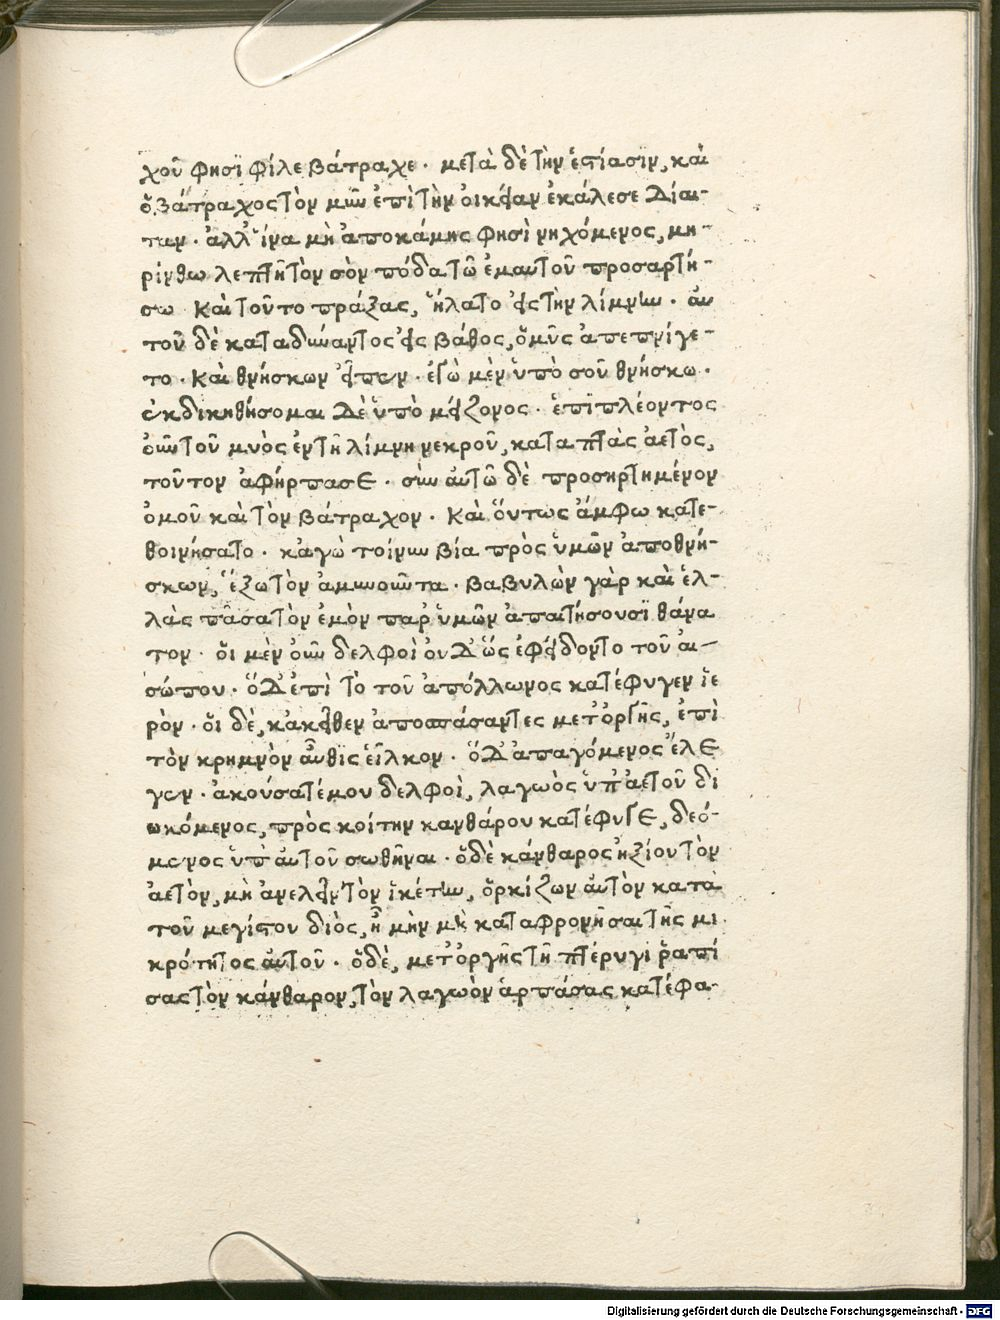 χοῦ φησὶ φίλε βάτραχε· μετὰ δὲ τὴν ἑστίασιν, καὶ
ὁ βάτραχος τὸν μῦν ἐπὶ τὴν οἰκείαν ἐκάλεσε δίαι-
ταν· ἀλλ' ἵνα μὴ ἀποκάμης φησὶ νηχόμενος, μη-
ρίνθω λεπτῆ τὸν σὸν πόδα τῶ ἐμαυτοῦ προσαρτή-
σω καὶ τοῦτο πράξας, ἥλατο εἰς τὴν λίμνην· αὐ
τοῦ δὲ καταδύναντος εἰς βάθος, ὁ μῦς ἀπεπνίγε-
το· καὶ θνήσκων εἶπεν· ἐγὼ μὲν ὑπὸ σοῦ θνήσκω·
ἐκδικηθήσομαι δὲ ὑπὸ μείζονος· ἐπιπλέοντος
οὖν τοῦ μυὸς ἐν τῆ λίμνη νεκροῦ, καταπτὰς ἀετὸς,
τοῦτον ἀφήρπασε· σὺν αὐτῶ δὲ προσηρτημένον
ὁμοῦ καὶ τὸν βάτραχον· καὶ οὕτως ἄμφω κατε-
θοινήσατο· κἀγὼ τοίνυν βία πρὸς ὑμῶν ἀποθνή-
σκων, ἕξω τὸν ἀμυνοῦντα· βαβυλὼν γὰρ καὶ ἑλ-
λὰς πᾶσα τὸν ἐμὸν παρ' ὑμῶν ἀπαιτήσουσι θάνα
τον· οἱ μὲν οὖν δελφοὶ οὐδ' ὣς ἐφείδοντο τοῦ αἰ-
σώπου· ὁ δ' ἐπὶ τὸ τοῦ ἀπόλλωνος κατέφυγεν ἱε
ρὸν· οἱ δὲ, κἀκεῖθεν ἀποσπάσαντες μετ' ὀργῆς, ἐπὶ
τὸν κρημνὸν αὖθις εἷλκον· ὁ δ' ἀπαγόμενος ἔλε
γεν· ἀκούσατέ μου δελφοὶ, λαγωὸς ὑπ' ἀετοῦ δι
ωκόμενος, πρὸς κοίτην κανθάρου κατέφυγε, δεό-
μενος ὑπ' αὐτοῦ σωθῆναι· ὁ δὲ κάνθαρος ἠξίου τὸν
ἀετὸν, μὴ ἀνελεῖν τὸν ἱκέτην, ὁρκίζων αὐτὸν κατὰ
τοῦ μεγίστου διὸς, ἦ μὴν μὴ καταφρονῆσαι τῆς μι
κρότητος αὐτοῦ· ὁ δὲ, μετ' ὀργῆς τῆ πτέρυγι ῥαπί
σας τὸν κάνθαρον, τὸν λαγωὸν ἁρπάσας κατέφα-
Digitalisierung gefördert durch die Deutsche Forschungsgemeinschaft - DFG